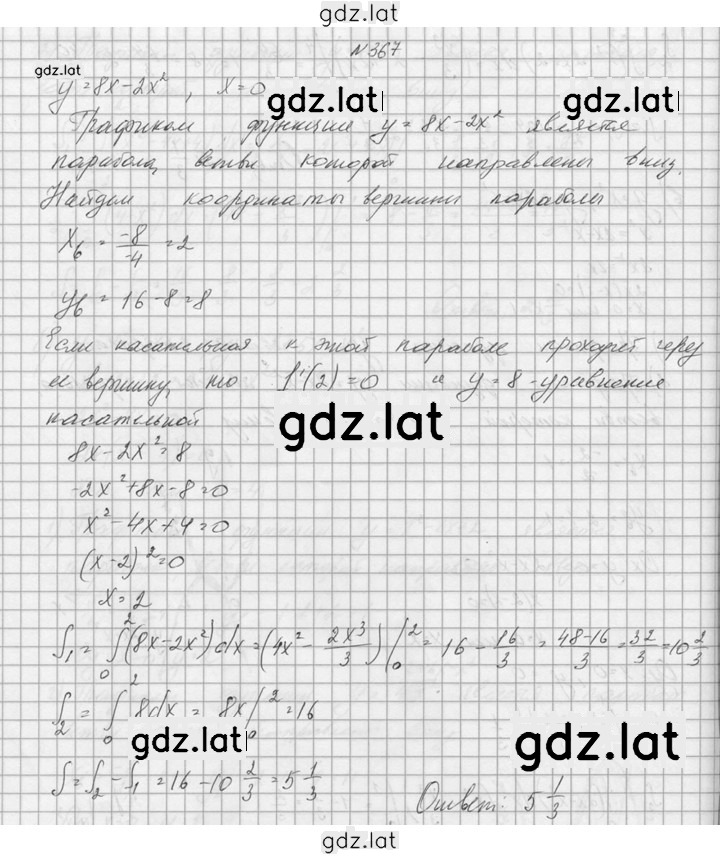 gdz.lat
№367
gdz.lat
y = 8x - 2x², x = 0
gdz.lat
gdz.lat
Графиком функции y = 8x - 2x² является
парабола, ветви которой направлены вниз.
Найдем координаты вершины параболы
x_в = -8/-4 = 2
y_в = 16 - 8 = 8
Если касательная к этой параболе проходит через
ее вершину, то f'(2) = 0 и y = 8 - уравнение
касательной
gdz.lat
8x - 2x² = 8
-2x² + 8x - 8 = 0
x² - 4x + 4 = 0
(x - 2)² = 0
x = 2
S₁ = ∫₀² (8x - 2x²) dx = (4x² - 2x³/3) |₀² = 16 - 16/3 = 48-16/3 = 32/3 = 10 2/3
S₂ = ∫₀² 8dx = 8x |₀² = 16
gdz.lat
gdz.lat
S = S₂ - S₁ = 16 - 10 2/3 = 5 1/3
Ответ: 5 1/3
gdz.lat